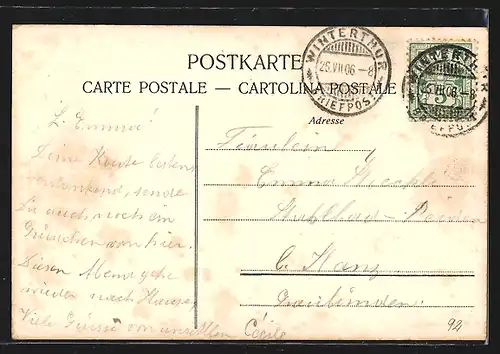 POSTKARTE
CARTE POSTALE — CARTOLINA POSTALE
Adresse
WINTERTHUR
25.VII.06.–8
BRIEFPOST
L. Emma!
Deine Karte bestens
verdankend, sende
Dir auch noch ein
Grüsschen von hier.
Diesen Abend gehe
wieder nach Hause.
Viele Grüsse von uns Allen Cécile
Fräulein
Emma
b. Ilanz
Graubünden
92